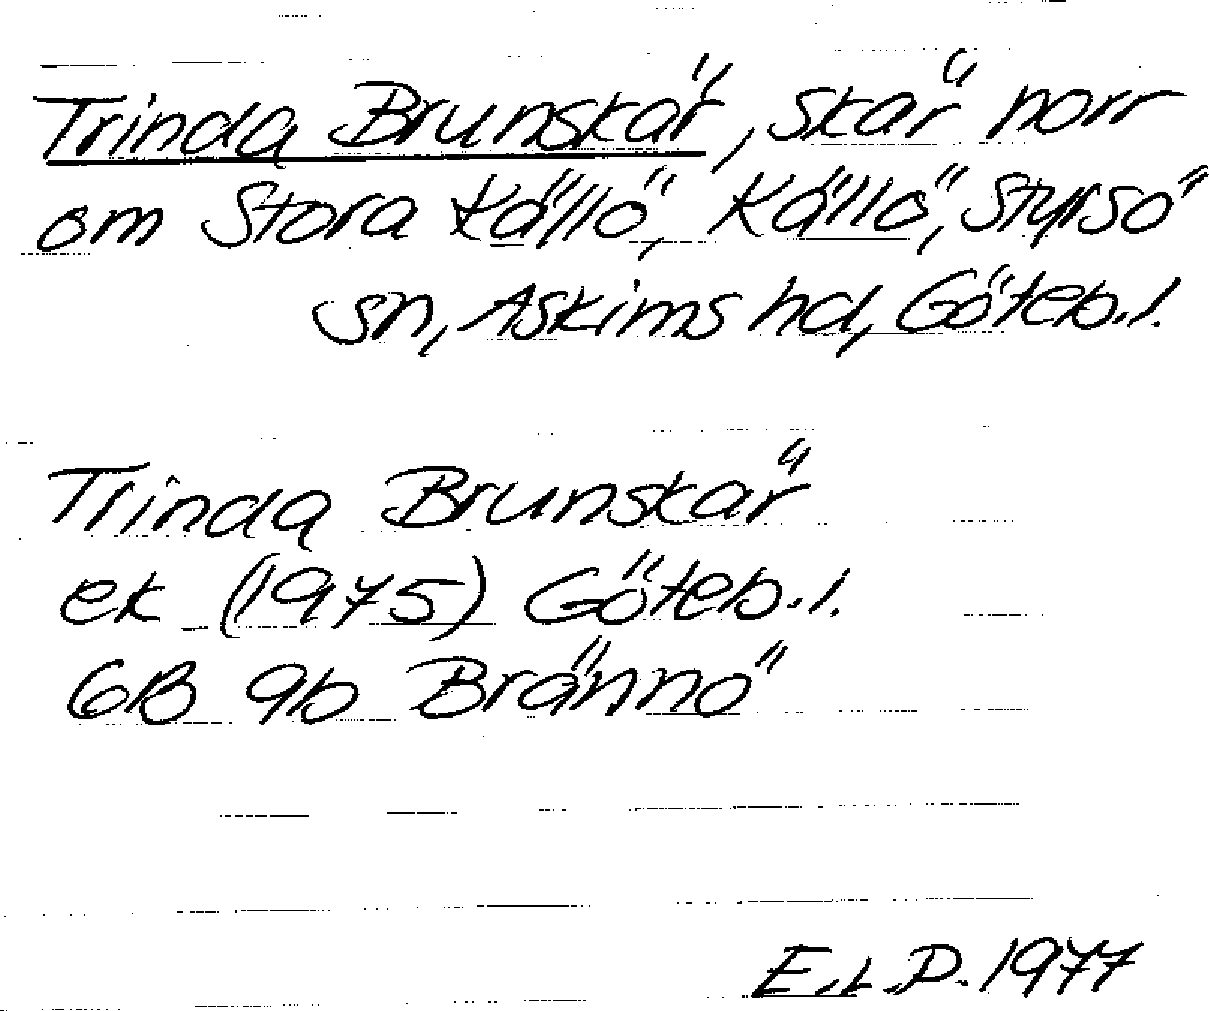 Trinda Brunskär, skär norr
om Stora Källö, Källö, Styrsö
sn, Askims hd, Göteb.l.
Trinda Brunskär
ek (1975) Göteb.l.
6B 9b Brännö
E.L.D. 1977